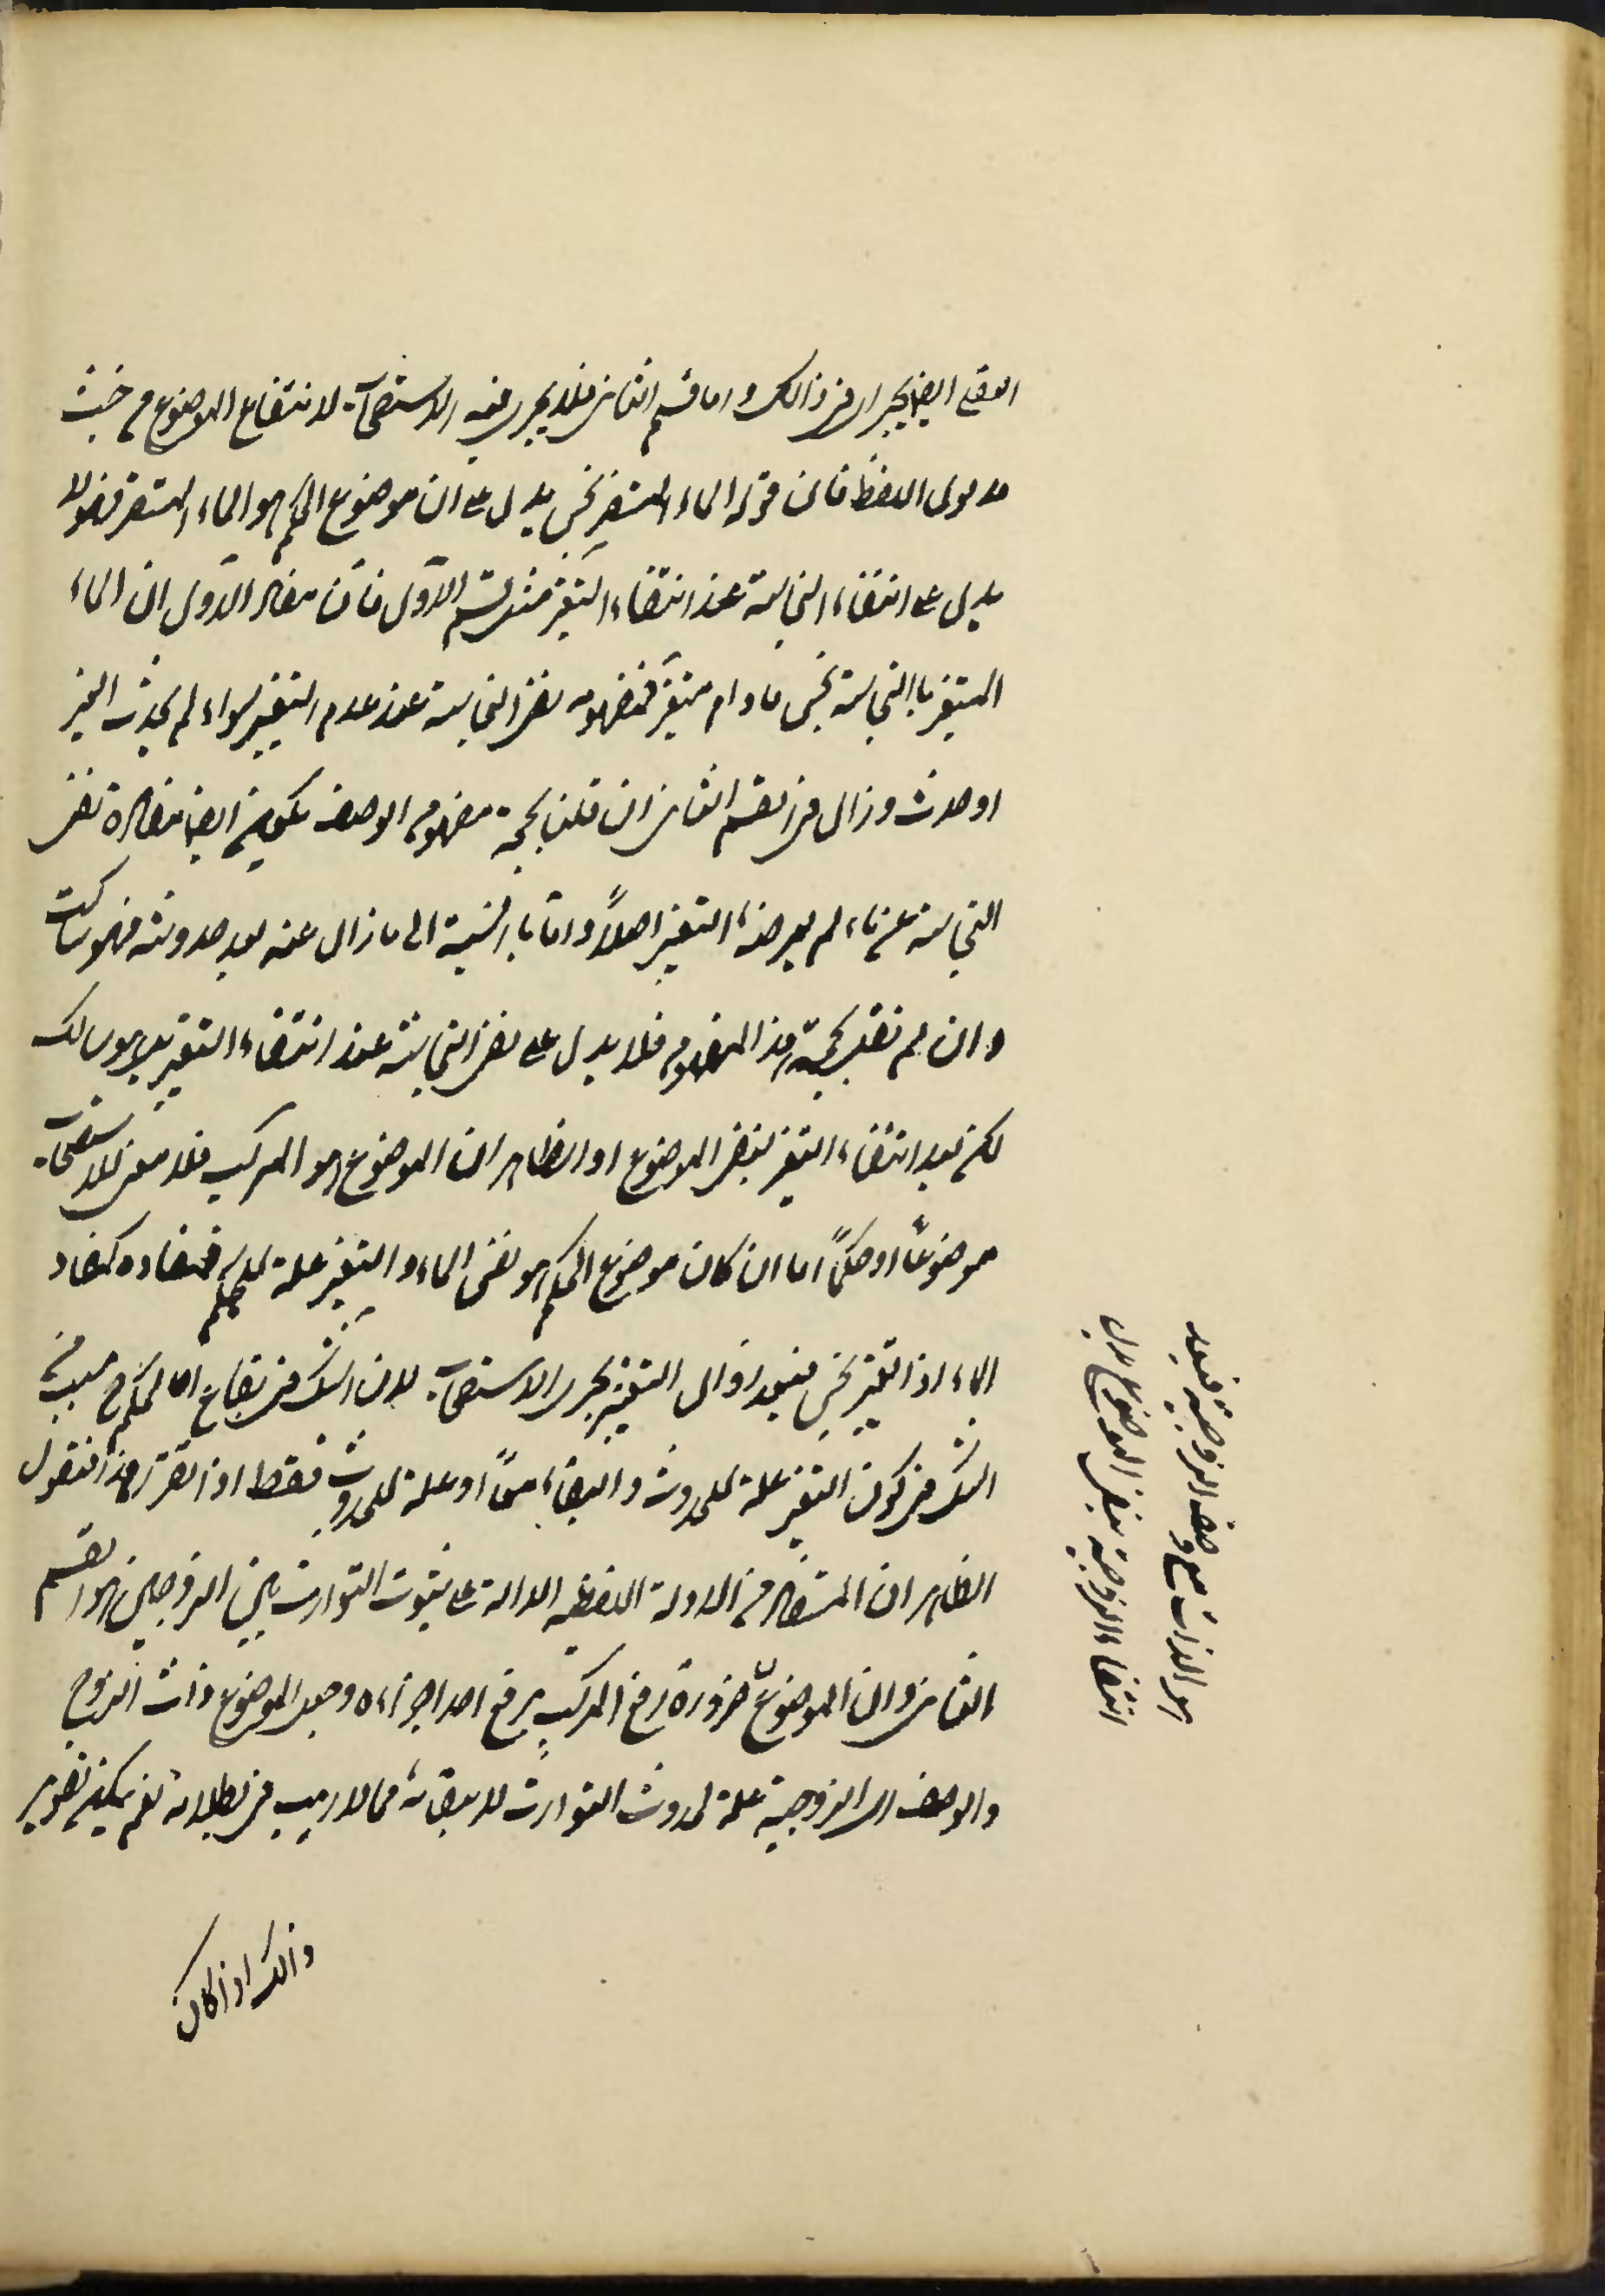 الدفع ايضا يجرى فى ذالك واما قسم الثانى فلا يجرى فيه الاستصحاب لانتفاع الموضوع من حيث
مدلول اللفظ فان قوله الماء المتغير نجس يدل على ان موضوع الحكم هو الماء المتغير فهو لا
يدل على انتفاء النجاسة عند انتفاء التغير مثل قسم الاول فان مفاد الاول ان الماء
المتغير باالنجاسة نجس مادام متغير فمفهومه نفى النجاسة عند عدم التغير سواء لم يحدث التغير
او حدث وزال فى القسم الثانى ان قلنا بحجية مفهوم الوصف يكون ايضا مفاده نفى
النجاسة عن ماء لم يعرضه التغير اصلاً واما بالنسبة الى ما زال عنه بعد حدوثه فهو ساكت
وان لم نقل بحجية هذا المفهوم فلا يدل على نفى النجاسة عند انتفاء التغير بل هو ساكت
لكن بعد انتفاء التغير ينتفى الموضوع اذ الظاهر ان الموضوع هو المركب فلا معنى للاستصحاب
موضوعاً او حكماً اما ان كان موضوع الحكم هو نفس الماء والتغير علة للحكم فمفاده كمفاد
الماء اذا تغير نجس فبعد زوال التغير يجرى الاستصحاب لان الشك فى بقاع الحكم ح مسبب من
الشك فى كون التغير علة للحدوث والبقاء معاً او علة للحدوث فقط اذا تقرر هذا فنقول
الظاهر ان المستفاد من الادلة اللفظيه الدالة على ثبوت التوارث بين الزوجين هو القسم
الثانى وان الموضوع ضرورة رفع المركب برفع احد اجزاءه وجعل الموضوع ذات الزوج
والوصف اى الزوجية علة لحدوث التوارث لا بقائه مما لا ريب فى بطلانه نعم يمكن تقرير
هو الذات مع وصف الزوجية فبعد
انتفاء الزوجية ينتفى الموضوع
وذالك اذا كان